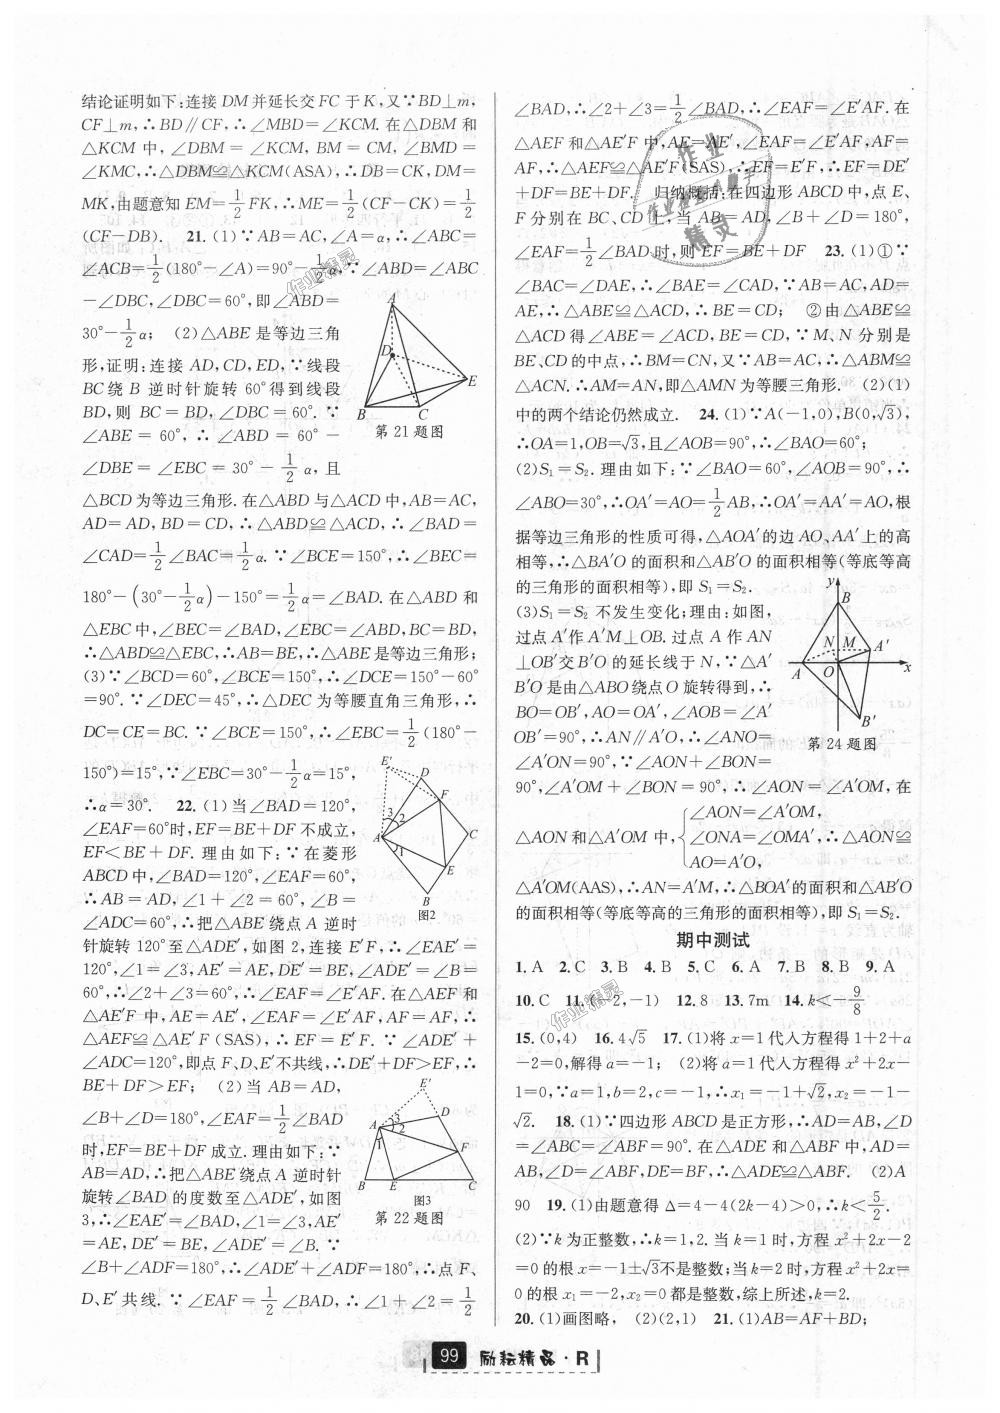 结论证明如下:连接 DM 并延长交 FC 于 K,又∵BD⊥m,
CF⊥m,∴BD∥CF,∴∠MBD=∠KCM.在△DBM 和
△KCM 中,∠DBM=∠KCM,BM=CM,∠BMD=
∠KMC,∴△DBM≌△KCM(ASA),∴DB=CK,DM=
MK,由题意知 EM=1/2FK,∴ME=1/2(CF-CK)=1/2
(CF-DB). 21.(1)∵AB=AC,∠A=α,∴∠ABC=
∠ACB=1/2(180°-∠A)=90°-1/2α,∵∠ABD=∠ABC
-∠DBC,∠DBC=60°,即∠ABD=
30°-1/2α; (2)△ABE 是等边三角
形,证明:连接 AD,CD,ED,∵线段
BC 绕 B 逆时针旋转 60°得到线段
BD,则 BC=BD,∠DBC=60°.∵
∠ABE=60°,∴∠ABD=60°-
∠DBE=∠EBC=30°-1/2α,且
△BCD 为等边三角形.在△ABD 与△ACD 中,AB=AC,
AD=AD,BD=CD,∴△ABD≌△ACD,∴∠BAD=
∠CAD=1/2∠BAC=1/2α.∵∠BCE=150°,∴∠BEC=
180°-(30°-1/2α)-150°=1/2α=∠BAD.在△ABD 和
△EBC 中,∠BEC=∠BAD,∠EBC=∠ABD,BC=BD,
∴△ABD≌△EBC,∴AB=BE,∴△ABE 是等边三角形;
(3)∵∠BCD=60°,∠BCE=150°,∴∠DCE=150°-60°
=90°.∵∠DEC=45°,∴△DEC 为等腰直角三角形,∴
DC=CE=BC.∵∠BCE=150°,∴∠EBC=1/2(180°-
150°)=15°,∵∠EBC=30°-1/2α=15°,
∴α=30°. 22.(1)当∠BAD=120°,
∠EAF=60°时,EF=BE+DF 不成立,
EF<BE+DF.理由如下:∵在菱形
ABCD 中,∠BAD=120°,∠EAF=60°,
∴AB=AD,∠1+∠2=60°,∠B=
∠ADC=60°,∴把△ABE 绕点 A 逆时
针旋转 120°至△ADE′,如图 2,连接 E′F,∴∠EAE′=
120°,∠1=∠3,AE′=AE,DE′=BE,∠ADE′=∠B=
60°,∴∠2+∠3=60°,∴∠EAF=∠E′AF.在△AEF 和
△AE′F 中,AE=AE′,∠EAF=∠E′AF,AF=AF,∴
△AEF≌△AE′F(SAS),∴EF=E′F.∵∠ADE′+
∠ADC=120°,即点 F、D、E′不共线,∴DE′+DF>EF,∴
BE+DF>EF; (2)当 AB=AD,
∠B+∠D=180°,∠EAF=1/2∠BAD
时,EF=BE+DF 成立.理由如下:∵
AB=AD,∴把△ABE 绕点 A 逆时针
旋转∠BAD 的度数至△ADE′,如图
3,∴∠EAE′=∠BAD,∠1=∠3,AE′
=AE,DE′=BE,∠ADE′=∠B.∵
∠B+∠ADF=180°,∴∠ADE′+∠ADF=180°,∴点 F、
D、E′共线.∵∠EAF=1/2∠BAD,∴∠1+∠2=1/2
A
D
E
B
C
第 21 题图
E′
D
F
3
2
A
C
1
E
B
图2
E′
D
A
3
2
1
F
B
E
C
图3
第 22 题图
∠BAD,∴∠2+∠3=1/2∠BAD,∴∠EAF=∠E′AF.在
△AEF 和△AE′F 中,AE=AE′,∠EAF=∠E′AF,AF=
AF,∴△AEF≌△AE′F(SAS),∴EF=E′F,∴EF=DE′
+DF=BE+DF. 归纳概括:在四边形 ABCD 中,点 E、
F 分别在 BC、CD 上,当 AB=AD,∠B+∠D=180°,
∠EAF=1/2∠BAD 时,则 EF=BE+DF 23.(1)①∵
∠BAC=∠DAE,∴∠BAE=∠CAD,∵AB=AC,AD=
AE,∴△ABE≌△ACD,∴BE=CD; ②由△ABE≌
△ACD 得∠ABE=∠ACD,BE=CD,∵M、N 分别是
BE、CD 的中点,∴BM=CN,又∵AB=AC,∴△ABM≌
△ACN.∴AM=AN,即△AMN 为等腰三角形. (2)(1)
中的两个结论仍然成立. 24.(1)∵A(-1,0),B(0,√3),
∴OA=1,OB=√3,且∠AOB=90°,∴∠BAO=60°;
(2)S₁=S₂.理由如下:∵∠BAO=60°,∠AOB=90°,∴
∠ABO=30°,∴OA′=AO=1/2AB,∴OA′=AA′=AO,根
据等边三角形的性质可得,△AOA′的边 AO、AA′上的高
相等,∴△BA′O 的面积和△AB′O 的面积相等(等底等高
的三角形的面积相等),即 S₁=S₂.
(3)S₁=S₂ 不发生变化;理由:如图,
过点 A′作 A′M⊥OB.过点 A 作 AN
⊥OB′交 B′O 的延长线于 N,∵△A′
B′O 是由△ABO 绕点 O 旋转得到,∴
BO=OB′,AO=OA′,∠AOB=∠A′
OB′=90°,∴AN∥A′O,∴∠ANO=
∠A′ON=90°,∵∠AON+∠BON=
90°,∠A′OM+∠BON=90°,∴∠AON=∠A′OM,在
△AON 和△A′OM 中,{∠AON=∠A′OM,
∠ONA=∠OMA′,∴△AON≌
AO=A′O,
△A′OM(AAS),∴AN=A′M,∴△BOA′的面积和△AB′O
的面积相等(等底等高的三角形的面积相等),即 S₁=S₂.
y
B
N
M
A′
A
O
x
B′
第 24 题图
期中测试
1. A 2. C 3. B 4. B 5. C 6. A 7. B 8. B 9. A
10. C 11.(-2,-1) 12. 8 13. 7m 14. k<-9/8
15.(0,4) 16. 4√5 17.(1)将 x=1 代入方程得 1+2+a
-2=0,解得 a=-1; (2)将 a=1 代入方程得 x²+2x-
1=0,∵a=1,b=2,c=-1,∴x₁=-1+√2,x₂=-1-
√2. 18.(1)∵四边形 ABCD 是正方形,∴AD=AB,∠D
=∠ABC=∠ABF=90°.在△ADE 和△ABF 中,AD=
AB,∠D=∠ABF,DE=BF,∴△ADE≌△ABF. (2)A
90 19.(1)由题意得 Δ=4-4(2k-4)>0,∴k<5/2.
(2)∵k 为正整数,∴k=1,2.当 k=1 时,方程 x²+2x-2
=0 的根 x=-1±√3不是整数;当 k=2 时,方程 x²+2x=
0 的根 x₁=-2,x₂=0 都是整数,综上所述,k=2.
20.(1)画图略, (2)(2,1) 21.(1)AB=AF+BD;
99 励耘精品·R
作业精灵
作业精灵